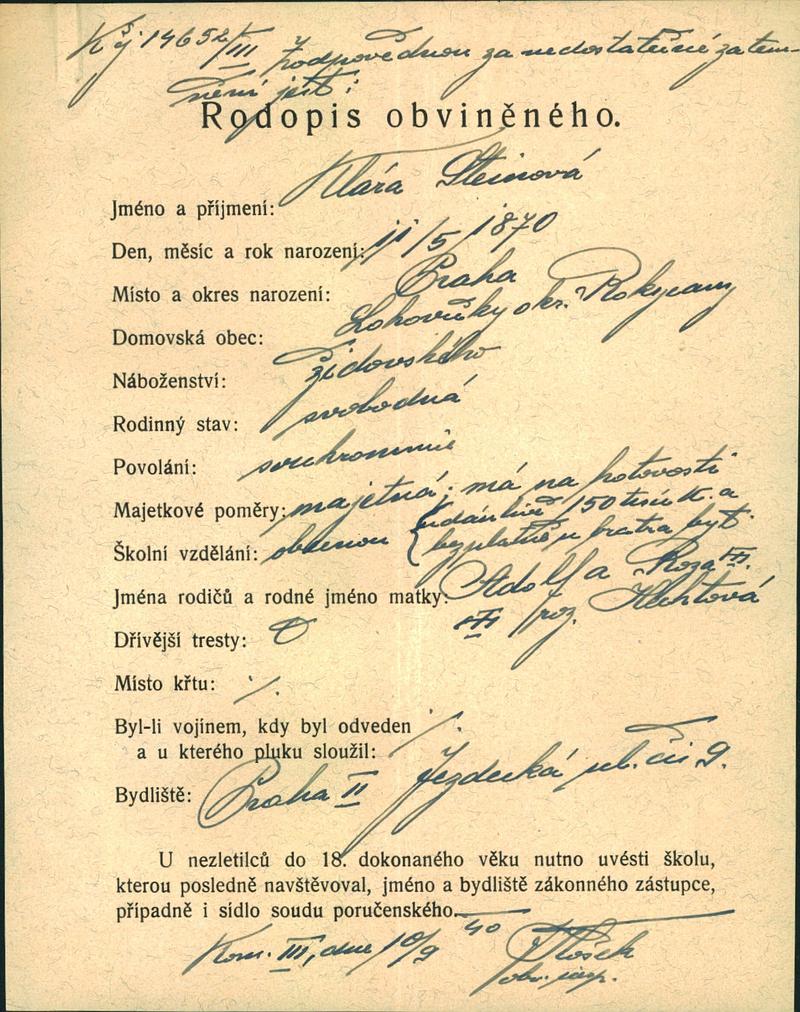 K čj 14652/III Zodpovědnou za nedostatečné zatem-
nění jest:
Rodopis obviněného.
Jméno a příjmení: Klára Steinová
Den, měsíc a rok narození: 11/5 1870
Místo a okres narození: Praha
Domovská obec: Lohovičky okr. Rokycany
Náboženství: židovského
Rodinný stav: svobodná
Povolání: soukromnice
Majetkové poměry: majetná; má na hotovosti
150 tisíc K. a
Školní vzdělání: obecnou bezplatně u bratra byt.
Jména rodičů a rodné jméno matky: Adolf a Roza
roz.
Dřívější tresty: 0
Místo křtu: ./.
Byl-li vojínem, kdy byl odveden ./.
a u kterého pluku sloužil:
Bydliště: Praha II Jezdecká ul. čís 9.
U nezletilců do 18. dokonaného věku nutno uvésti školu,
kterou posledně navštěvoval, jméno a bydliště zákonného zástupce,
případně i sídlo soudu poručenského.
Kom. III, dne 10/9 40